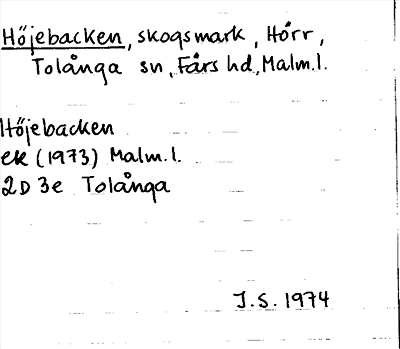 Höjebacken, skogsmark, Hörr,
Tolånga sn, Färs hd, Malm.l.
Höjebacken
ek (1973) Malm.l.
2D 3e Tolånga
J.S. 1974